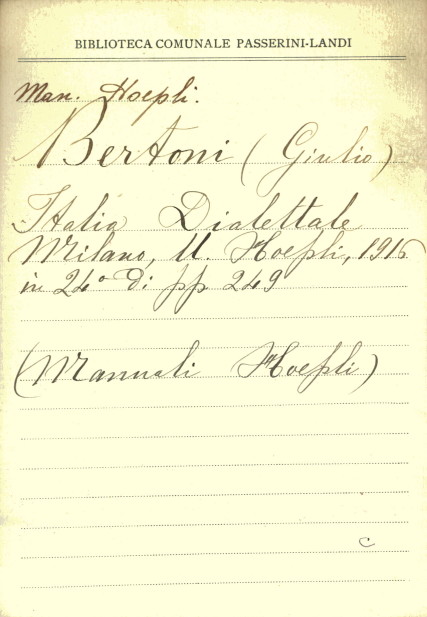 BIBLIOTECA COMUNALE PASSERINI-LANDI
Man. Hoepli.
Bertoni (Giulio)
Italia Dialettale
Milano, U. Hoepli, 1916
in 24° di pp 249
(Manuali Hoepli)
c